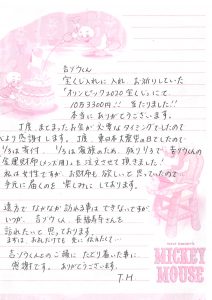 吉ゾウくん
宝くじ入れに入れ お祈りしていた
「オリンピック2020宝くじ」にて
10万3300円!! 当たりました!!
本当にありがとうございます。
丁度、まとまったお金が必要なタイミングでしたので
心より感謝します。丁度、東日本大震災の日でしたので
1/3は寄付、1/3は家族のため、残り1/3で吉ゾウくんの
金運財布(メンズ用)を注文させて頂きました!
私は女性ですが、お財布も欲しいと思っていたので
手元に届くのを楽しみにしております。
遠方でなかなか訪れる事はできないですが
いつか、吉ゾウくん、長福寿寺さんを
訪れたいと思っております。
まずは、お礼だけでも先に伝えたくて…
吉ゾウくんとのご縁に たどり着いた事に
感謝です。ありがとうございます。
T.H
MICKEY
MOUSE